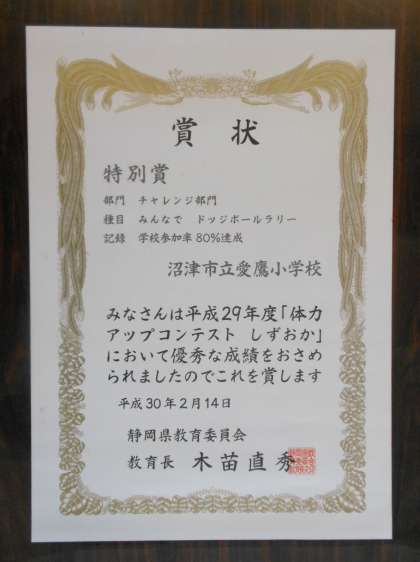 賞状
特別賞
部門 チャレンジ部門
種目 みんなで ドッジボールラリー
記録 学校参加率80%達成
沼津市立愛鷹小学校
みなさんは平成29年度「体力
アップコンテスト しずおか」
において優秀な成績をおさめ
られましたのでこれを賞します
平成30年2月14日
静岡県教育委員会
教育長 木苗直秀